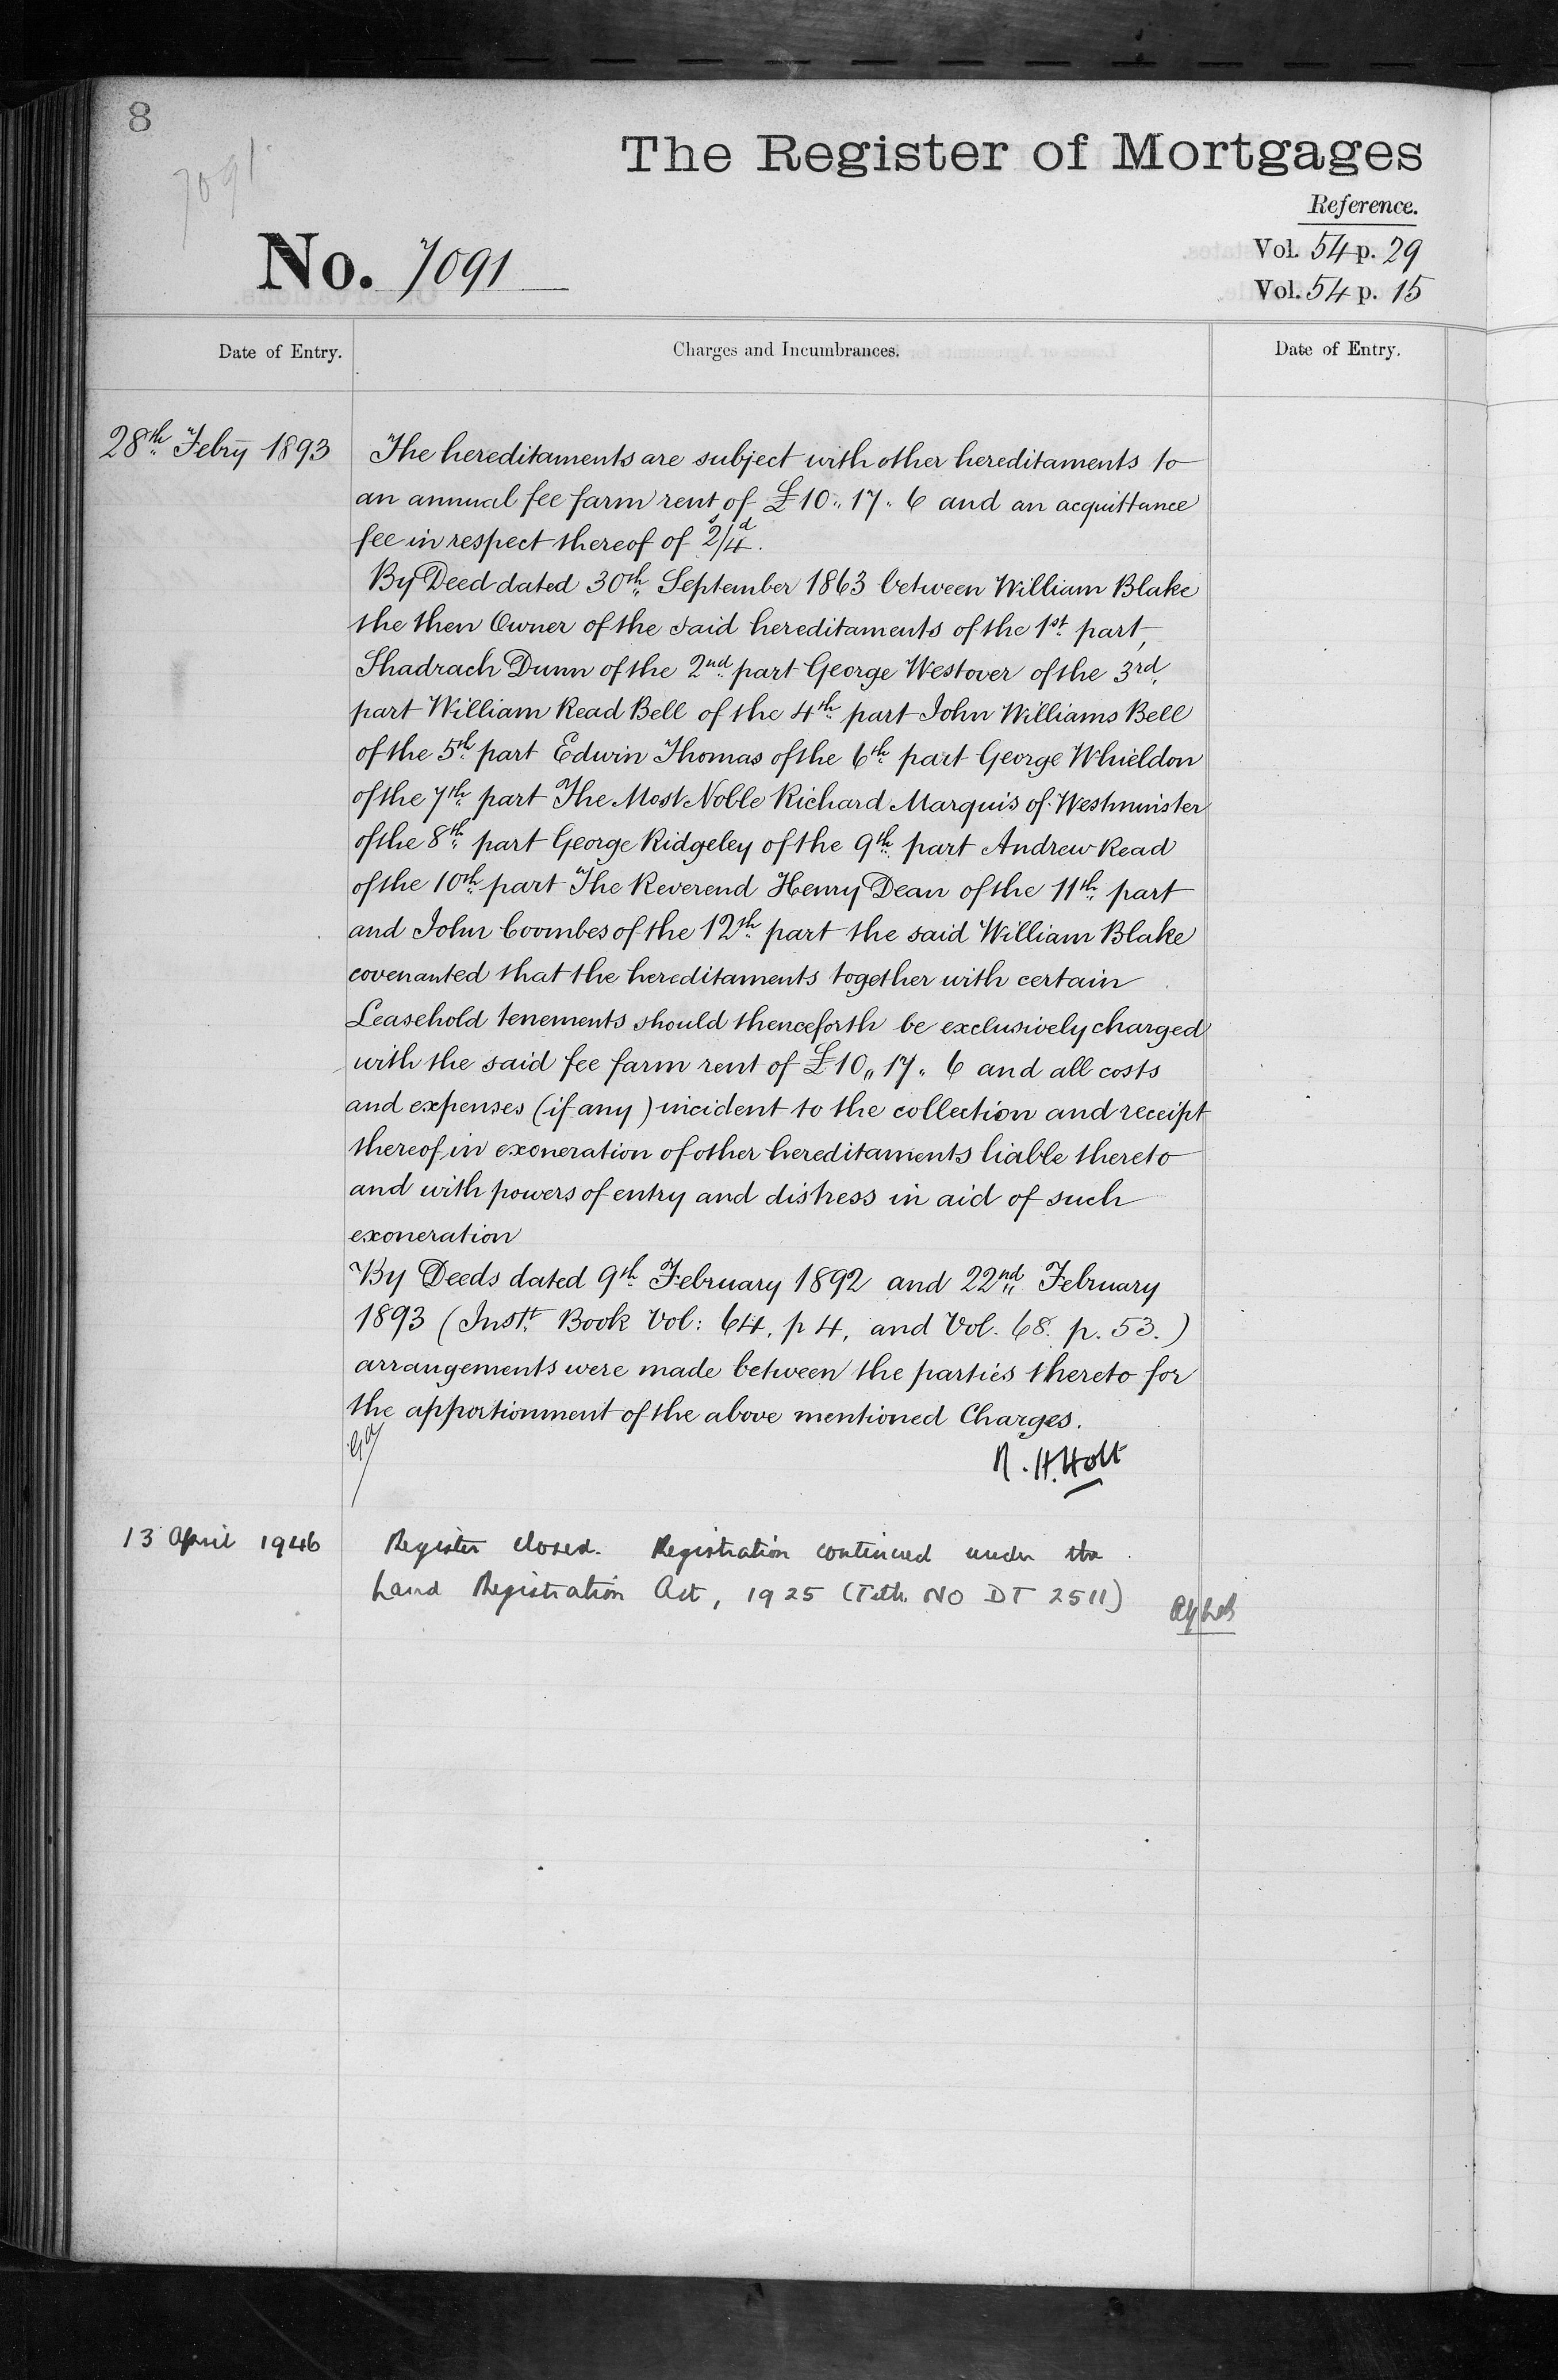 8
7091
The Register of Mortgages
Reference.
No. 7091
Vol. 54 p. 29
Vol. 54 p. 15
Date of Entry.
Charges and Incumbrances.
Date of Entry.
28th Febry 1893
The hereditaments are subject with other hereditaments to
an annual fee farm rent of £10 " 17 " 6 and an acquittance
fee in respect thereof of 2s/4d.
By Deed dated 30th September 1863 between William Blake
the then Owner of the said hereditaments of the 1st part,
Shadrach Dunn of the 2nd part George Westover of the 3rd
part William Read Bell of the 4th part John Williams Bell
of the 5th part Edwin Thomas of the 6th part George Whieldon
of the 7th part The Most Noble Richard Marquis of Westminster
of the 8th part George Ridgeley of the 9th part Andrew Read
of the 10th part The Reverend Henry Dean of the 11th part
and John Coombes of the 12th part the said William Blake
covenanted that the hereditaments together with certain
Leasehold tenements should thenceforth be exclusively charged
with the said fee farm rent of £10 " 17 " 6 and all costs
and expenses (if any) incident to the collection and receipt
thereof in exoneration of other hereditaments liable thereto
and with powers of entry and distress in aid of such
exoneration
By Deeds dated 9th February 1892 and 22nd February
1893 (Instt Book Vol: 64. p 4, and Vol. 68. p. 53.)
arrangements were made between the parties thereto for
the apportionment of the above mentioned Charges.
R. H. Holt
13 April 1946
Register closed. Registration continued under the
Land Registration Act, 1925 (Title No DT 2511)